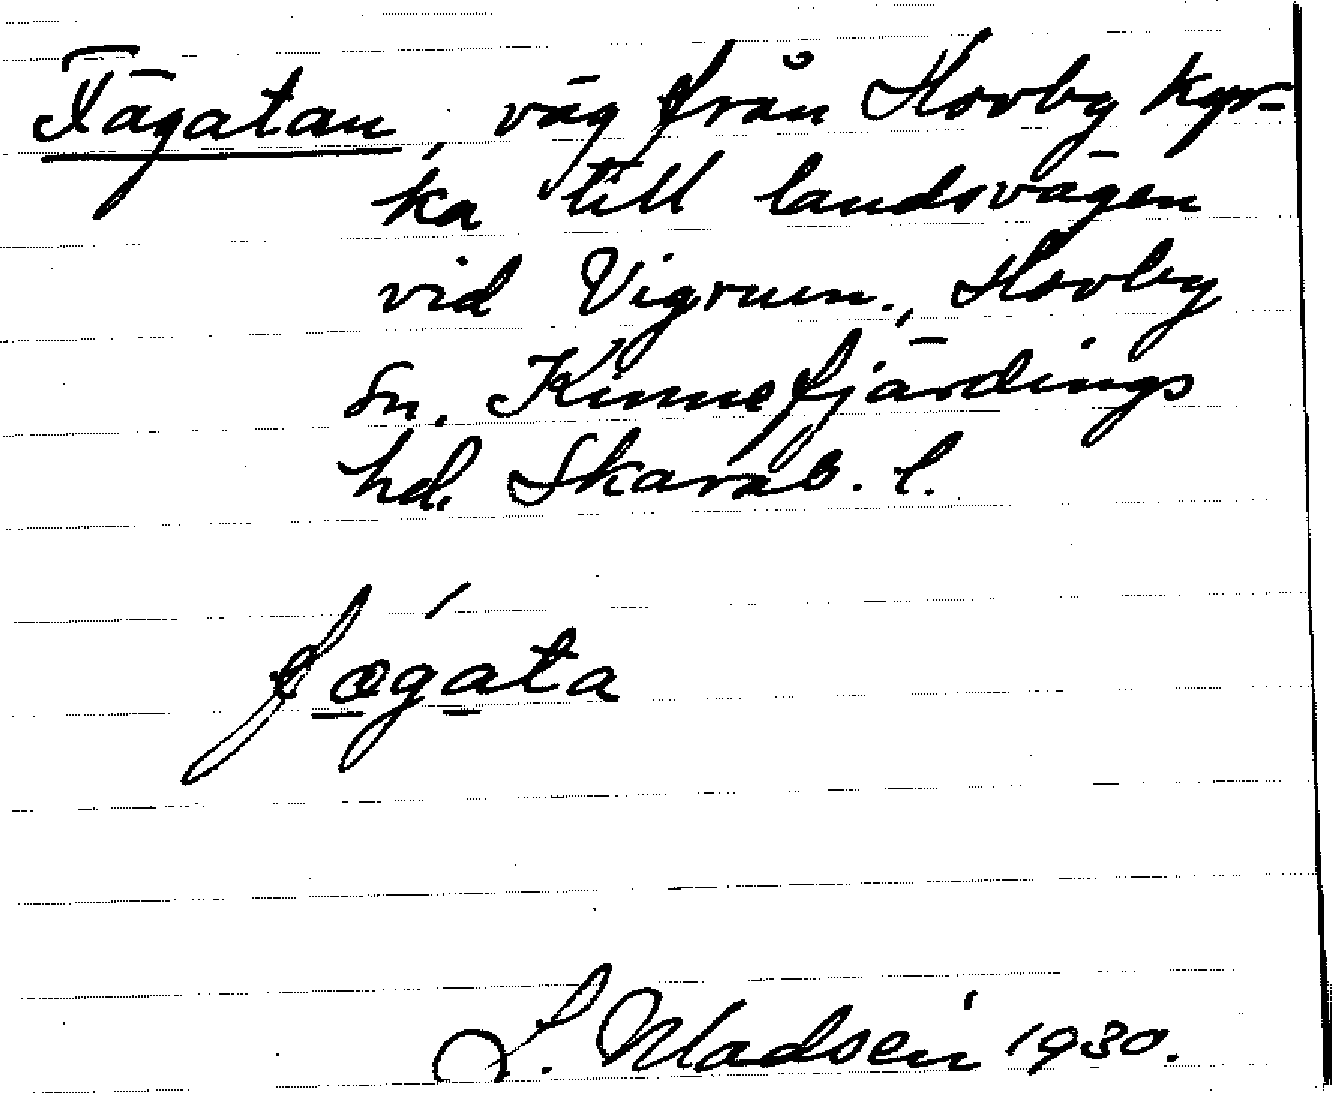 Fägatan, väg från Hovby kyr-
ka till landsvägen
vid Vigrum., Hovby
sn. Kinnefjärdings
hd. Skarab. l.
fǿgata
Madsén 1930.